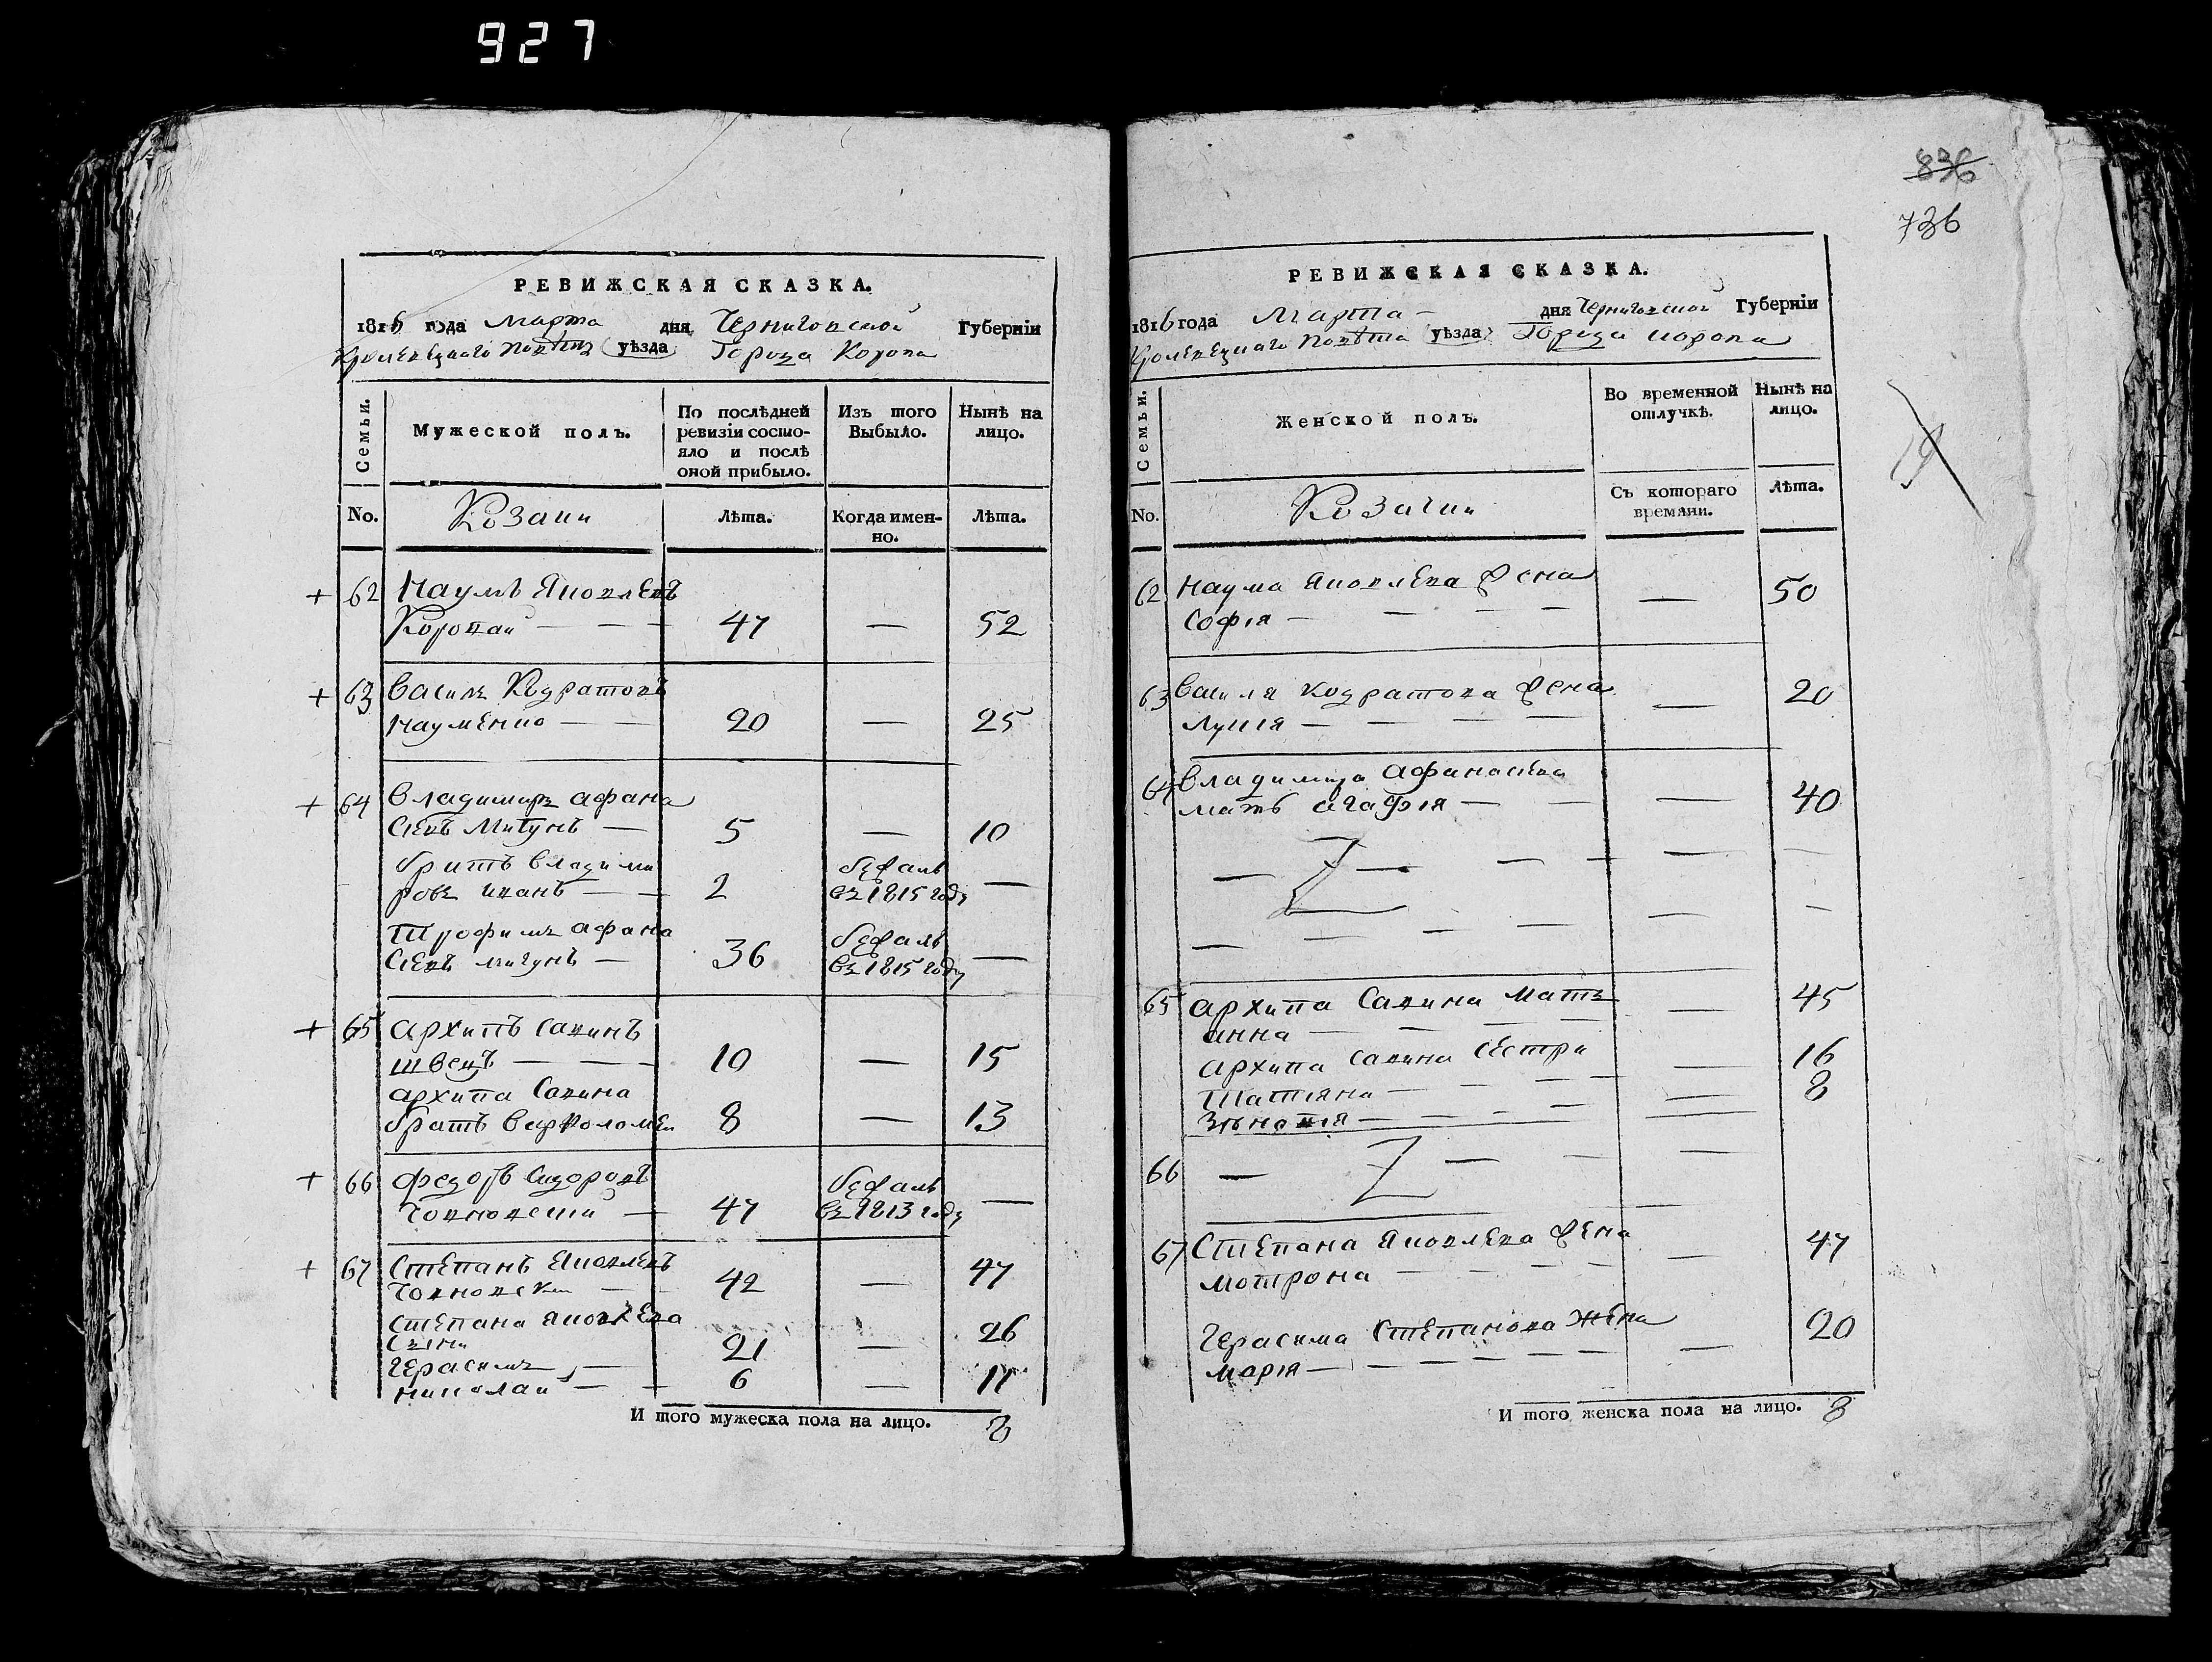 927
836
736
РЕВИЖСКАЯ СКАЗКА.
1816 года Марта дня Черниговской Губерніи
Кролевецкаго Повѣта уѣзда Города Коропа
Семьи.
Мужеской полъ.
По послѣдней ревизіи состояло и послѣ оной прибыло.
Изъ того Выбыло.
Нынѣ на лицо.
No.
Козаки
Лѣта.
Когда именно.
Лѣта.
+ 62 Наумъ Яковлевъ
Коропай — — — 47 — 52
+ 63 Василъ Кодратовъ
Науменко — — 20 — 25
+ 64 Владимиръ Афана
сіевъ Мигунъ — 5 — 10
братъ Владими
ровъ Иванъ — — 2 бежалъ въ 1815 году —
Трофимъ Афана
сіевъ Мигунъ — 36 бежалъ въ 1815 году —
+ 65 Архипъ Савинъ
Швецъ — — — 10 — 15
Архипа Савина
братъ Варфоломей 8 — 13
+ 66 Федоръ Сидоровъ
— 47 бежалъ въ 1813 году —
+ 67 Степанъ Яковлевъ
— 42 — 47
Степана Яковлева
сыни
Герасимъ — 21 — 26
Николай — — 6 — 11
И того мужеска пола на лицо. 8
РЕВИЖСКАЯ СКАЗКА.
1816 года Марта — дня Черниговской Губерніи
Кролевецкаго Повѣта уѣзда Города Коропа
Семьи.
Женской полъ.
Во временной отлучкѣ.
Нынѣ на лицо.
No.
Козачки
Съ котораго времяни.
Лѣта.
62 Наума Яковлева жена
Софія — — — — — 50
63 Василя Кодратова жена
Лукія — — — — — 20
64 Владимира Афанасіева
мать Агафія — — — 40
65 Архипа Савина мать
Анна — — — — — 45
Архипа Савина сестри
Татіяна — — — — — 16
Зѣновія — — — — — 8
66 — Z —
67 Степана Яковлева жена
Мотрона — — — — — 47
Герасима Степанова жена
Марія — — — — — — 20
И того женска пола на лицо. 8